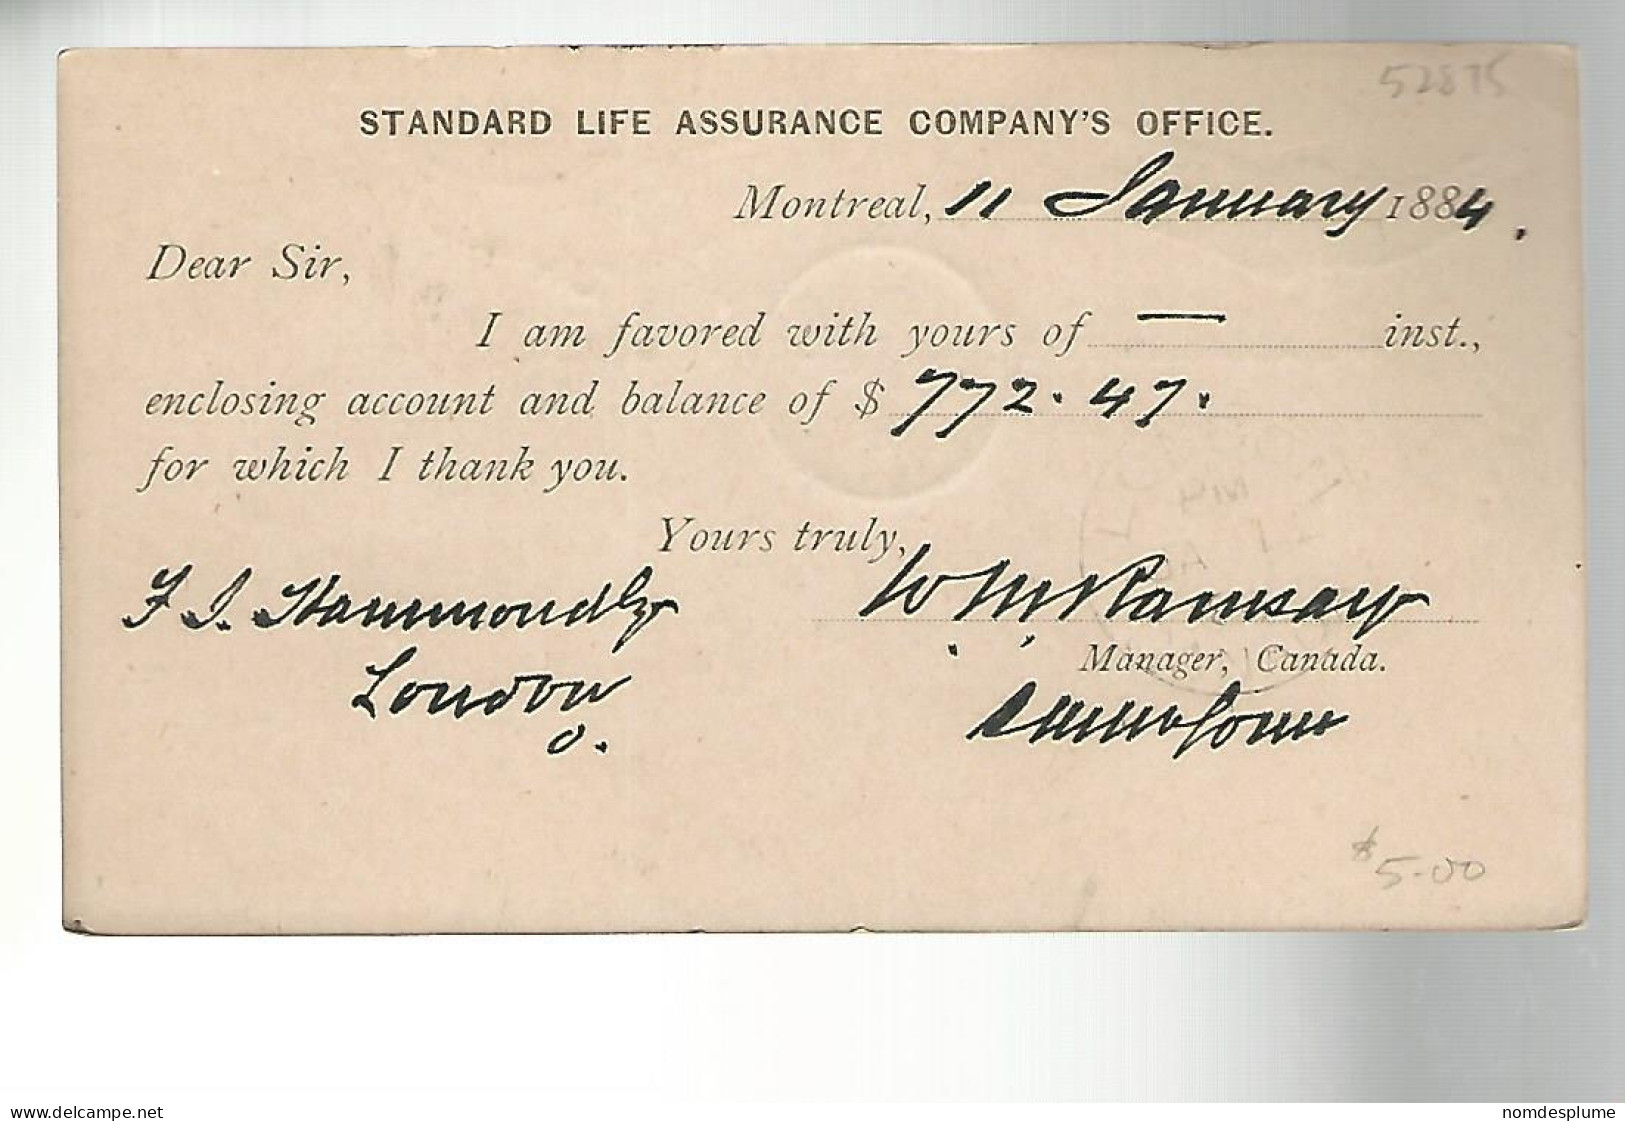 52875
STANDARD LIFE ASSURANCE COMPANY'S OFFICE.
Montreal, 11 January 1884.
Dear Sir,
I am favored with yours of — inst.,
enclosing account and balance of $ 772.47.
for which I thank you.
Yours truly,
F. J. Hammond Esqr W M Ramsay
Manager, Canada.
London
O.
$5.00
www.delcampe.net nomdesplume